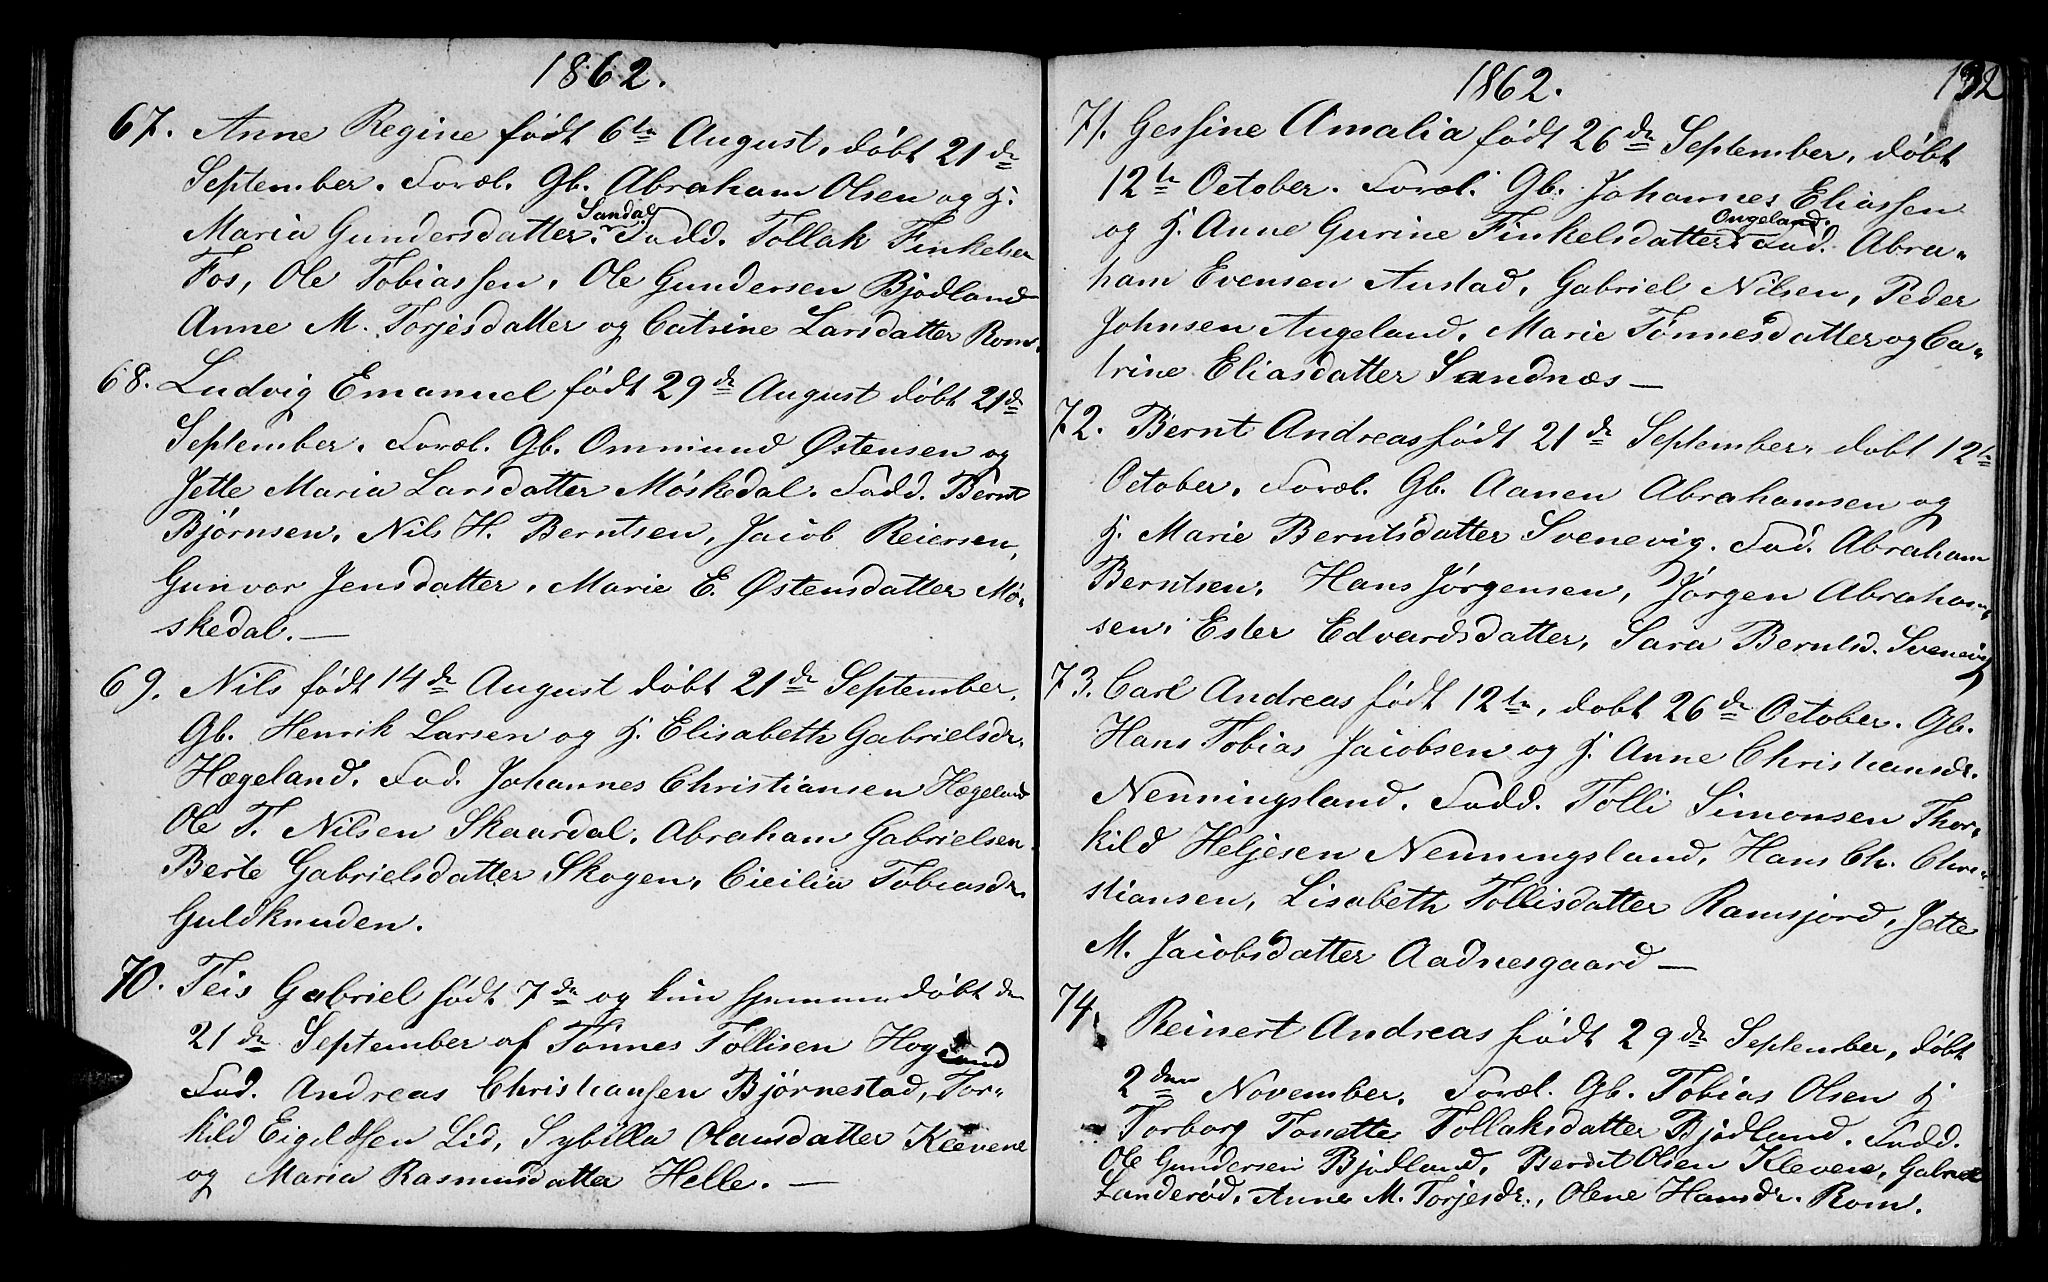 1862.
67. Anne Regine født 6te August, døbt 21de
September. Foræl. Gb. Abraham Olsen og H.
Maria Gundersdatter Sandaa. Fadd. Tollak Finkelsen
Fos, Ole Tobiassen, Ole Gundersen Bjødland
Anne M. Torjesdatter og Catrine Larsdatter Rom.
68. Ludvig Emanuel født 29de August døbt 21de
September. Foræl. Gb. Ommund Østensen og
Jette Maria Larsdatter Møskedal. Fadd. Bernt
Bjørnsen, Nils H. Berntsen, Jacob Reiersen,
Gunvor Jensdatter, Marie E. Østensdatter Mø-
skedal. —
69. Nils født 14de August døbt 21de September.
Gb. Henrik Larsen og H. Elisabeth Gabrielsdr.
Hægeland. Fad. Johannes Christiansen Hægeland
Ole T. Nilsen Skaardal, Abraham Gabrielsen
Berte Gabrielsdatter Skogen, Cicilia Tobiasdr.
Guldknuden.
70. Teis Gabriel født 7de og hjemmedøbt den
21de September af Tønnes Tollisen Hogland
Fad. Andreas Christiansen Bjørnestad, Tor-
kild Eigeldsen Lid, Sybilla Olausdatter Klevene
og Maria Rasmusdatter Helle. —
1862.
132
71. Gessine Amalia født 26de September, døbt
12te October. Foræl. Gb. Johannes Eliassen
og H. Anne Gurine Finkelsdatter Ougeland. Fad. Abra-
ham Evensen Austad, Gabriel Nilsen, Peder
Johnsen Augeland, Marie Tønnesdatter og Ca-
trine Eliasdatter Sandnæs —
72. Bernt Andreas født 21de September, døbt 12te
October. Foræl. Gb. Aanen Abrahamsen og
H. Marie Berntsdatter Svenevig. Fad. Abraham
Berntsen, Hans Jørgensen, Jørgen Abraham-
sen, Ester Edvardsdatter, Sara Berntsd. Svenevig
73. Carl Andreas født 12te, døbt 26de October. Gb.
Hans Tobias Jacobsen og H. Anne Christiansdr.
Nenningsland. Fadd. Tolli Simonsen Thor-
kild Heljesen Nenningsland, Hans Chr. Chri-
stiansen, Lisabeth Tollisdatter Ramsjord, Jette
M. Jacobsdatter Aadnesgaard —
74. Reinert Andreas født 29de September, døbt
2den November. Foræl. Gb. Tobias Olsen H.
Torborg Tonette Tollaksdatter Bjødland. Fadd.
Ole Gundersen Bjødland, Berent Olsen Kleven, Gabriel
Landerød, Anne M. Torjesdr., Olene Hansdr. Rom.